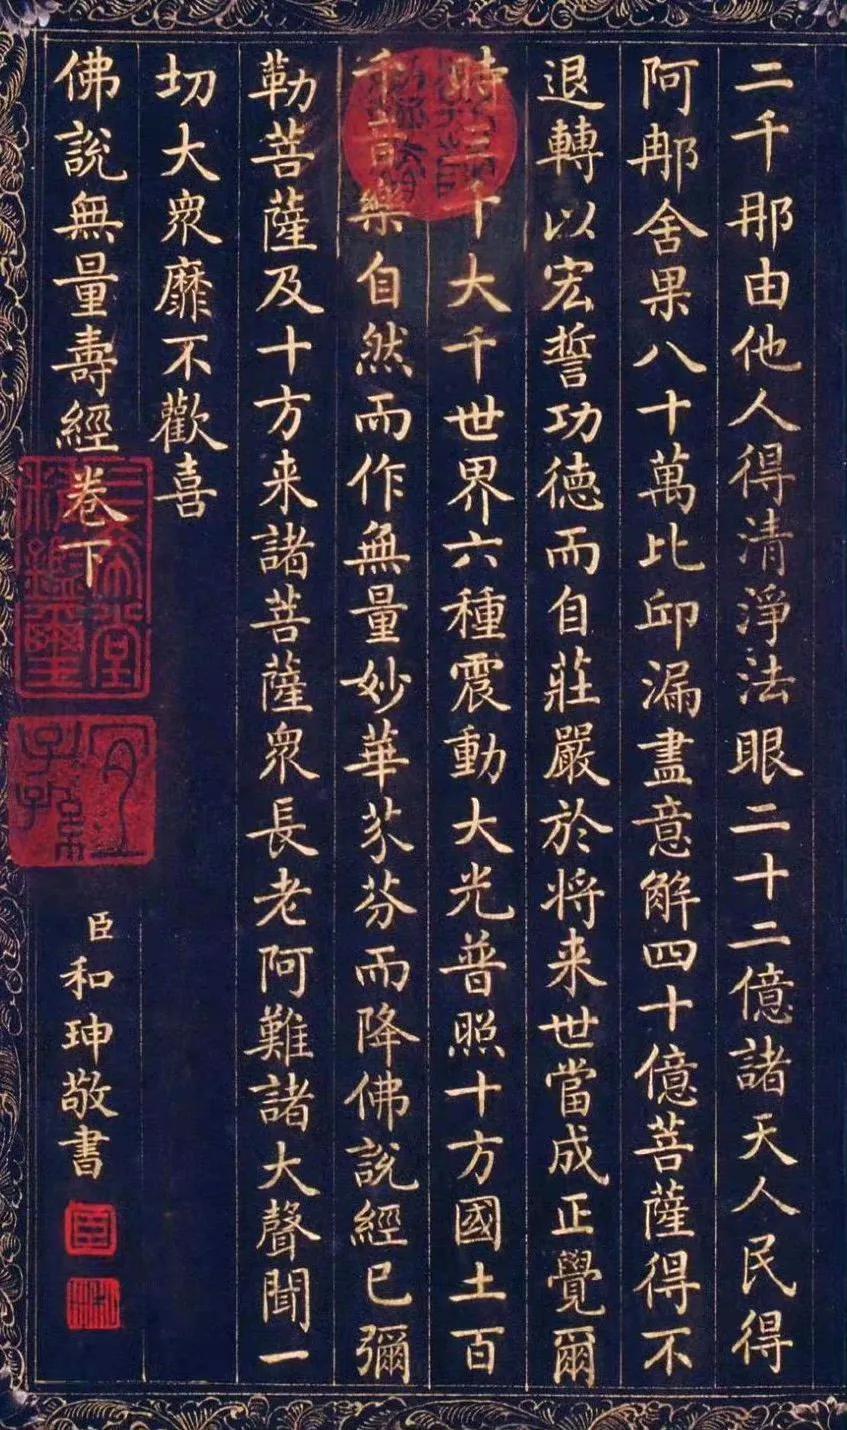 二千那由他人得清淨法眼二十二億諸天人民得
阿那舍果八十萬比邱漏盡意解四十億菩薩得不
退轉以宏誓功德而自莊嚴於將来世當成正覺爾
時三千大千世界六種震動大光普照十方國土百
千音樂自然而作無量妙華芬芬而降佛說經已彌
勒菩薩及十方来諸菩薩衆長老阿難諸大聲聞一
切大衆靡不歡喜
佛說無量壽經卷下
臣和珅敬書
三希堂精鑑璽
宜子孫
臣
和